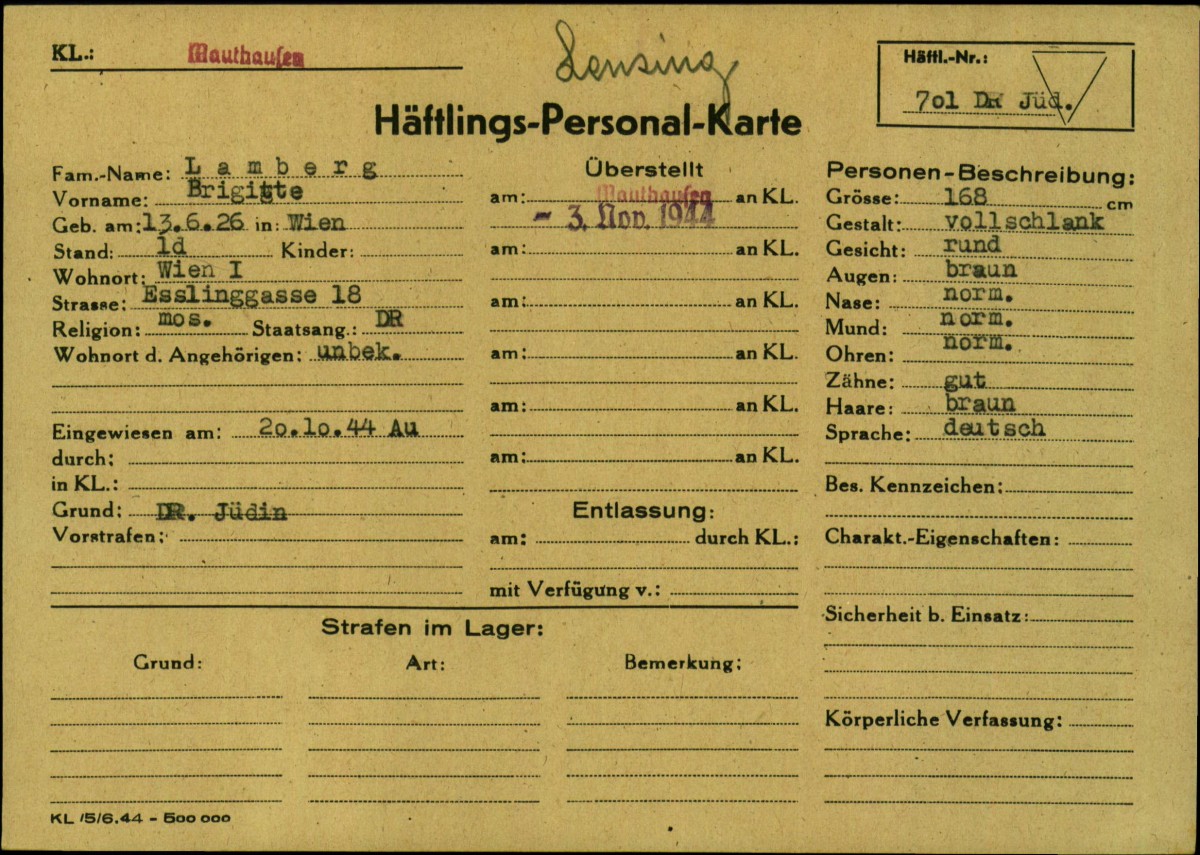 KL.: Mauthausen
Lensing
Häftl.-Nr.:
701 DR Jüd.
Häftlings-Personal-Karte
Fam.-Name: Lamberg
Vorname: Brigitte
Geb. am: 13.6.26 in: Wien
Stand: ld Kinder:
Wohnort: Wien I
Strasse: Esslinggasse 18
Religion: mos. Staatsang.: DR
Wohnort d. Angehörigen: unbek.
Eingewiesen am: 20.10.44 Au
durch:
in KL.:
Grund: DR. Jüdin
Vorstrafen:
Überstellt
am: Mauthausen an KL.
- 3. Nov. 1944
am: an KL.
am: an KL.
am: an KL.
am: an KL.
am: an KL.
Entlassung:
am: durch KL.:
mit Verfügung v.:
Personen-Beschreibung:
Grösse: 168 cm
Gestalt: vollschlank
Gesicht: rund
Augen: braun
Nase: norm.
Mund: norm.
Ohren: norm.
Zähne: gut
Haare: braun
Sprache: deutsch
Bes. Kennzeichen:
Charakt.-Eigenschaften:
Sicherheit b. Einsatz:
Körperliche Verfassung:
Strafen im Lager:
Grund: Art: Bemerkung:
KL /5/6.44 - 500 000